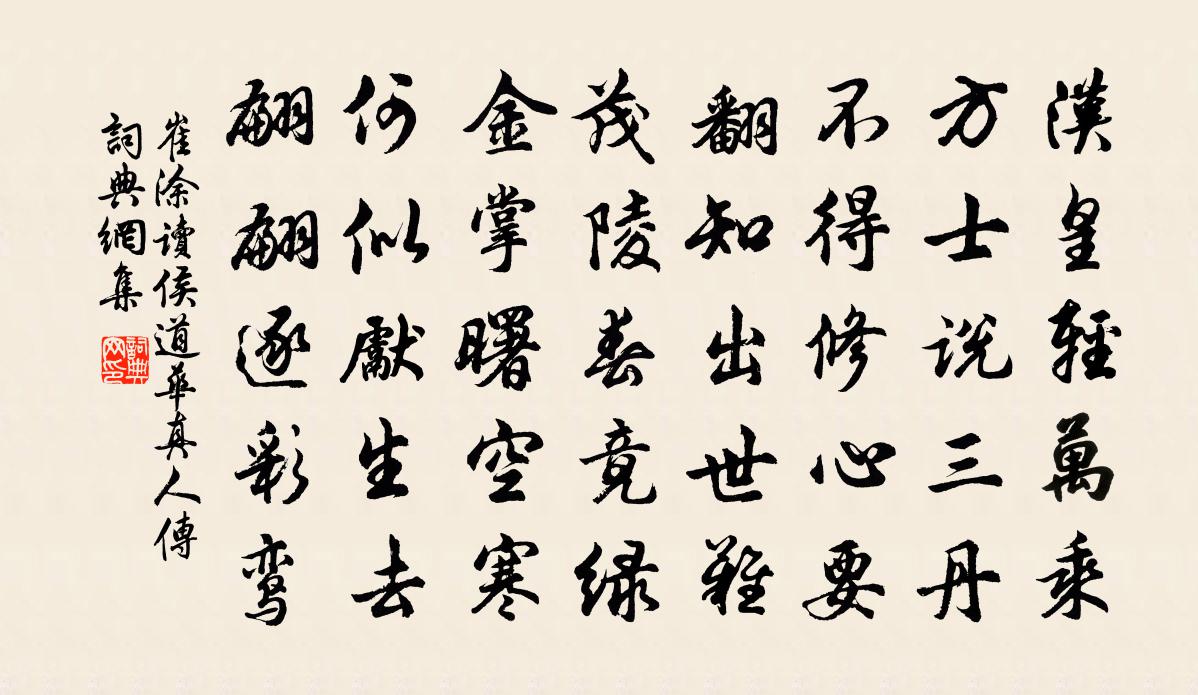 漢皇輕萬乘
方士説三丹
不得修心要
翻知出世難
茂陵春竟緑
金掌曙空寒
何似獻生去
翩翩逐彩鸾
崔涂讀侯道華真人傳
詞典網集
詞典網印